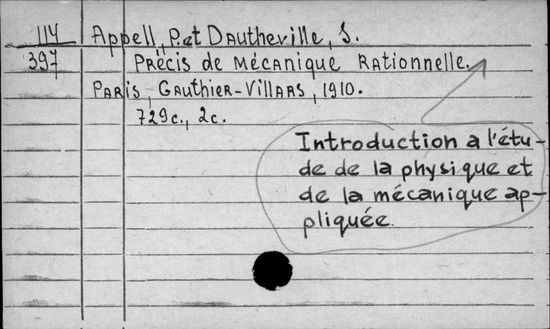 114 Appell, P. et Dautheville, S.
397 Précis de mécanique rationnelle.
Paris, Gauthier-Villars, 1910.
729c., 2c.
Introduction a l'étu-
de de la physique et
de la mécanique ap-
pliquée